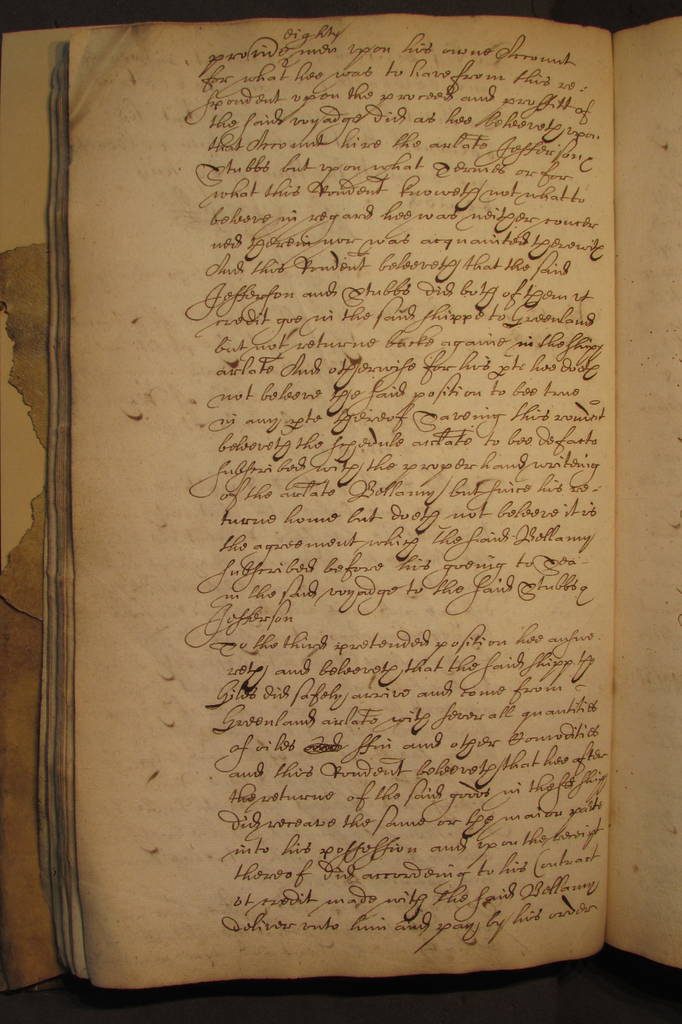 eighty
provide men upon his owne Account
for what hee was to have from this re-
spondent upon the proceed and proffitt of
the said voyadge did as hee beleeveth upon
that Account hire the arlate Jefferson &
Stubbs but upon what Termes or for
what this Rondent knoweth not what to
beleeve in regard hee was neither concer
ned therein nor was acquainted therewith
And this Rendent beleeveth that the said
Jefferson and Stubbs did both of them ut
credit goe in the said shippe to Greenland
but not returne backe againe in the shipp
arlate And otherwise for his pte hee doeth
not beleeve the said position to bee true
in any pte thereof Saveing this rondt
beleeveth the schedule arlate to bee de facto
subscribed with the proper hand writeing
of the arlate Bellamy but since his re-
turne home but doeth not beleeve it is
the agreement which the said Bellamy
subscribed before his goeing to Sea
in the said voyadge to the said Stubbs &
Jefferson
To the third pretended position hee answe
reth and beleeveth that the said shipp the
Giles did safely arrive and come from
Greenland arlate with severall quantities
of oiles ffin and other Comodities
and this Rondent beleeveth that hee after
the returne of the said goods in the sd shipp
did receave the same or the maior parte
into his possession and upon the receipt
thereof did accordeing to his Contract
ut credit made with the said Bellamy
deliver unto him and pay by his order